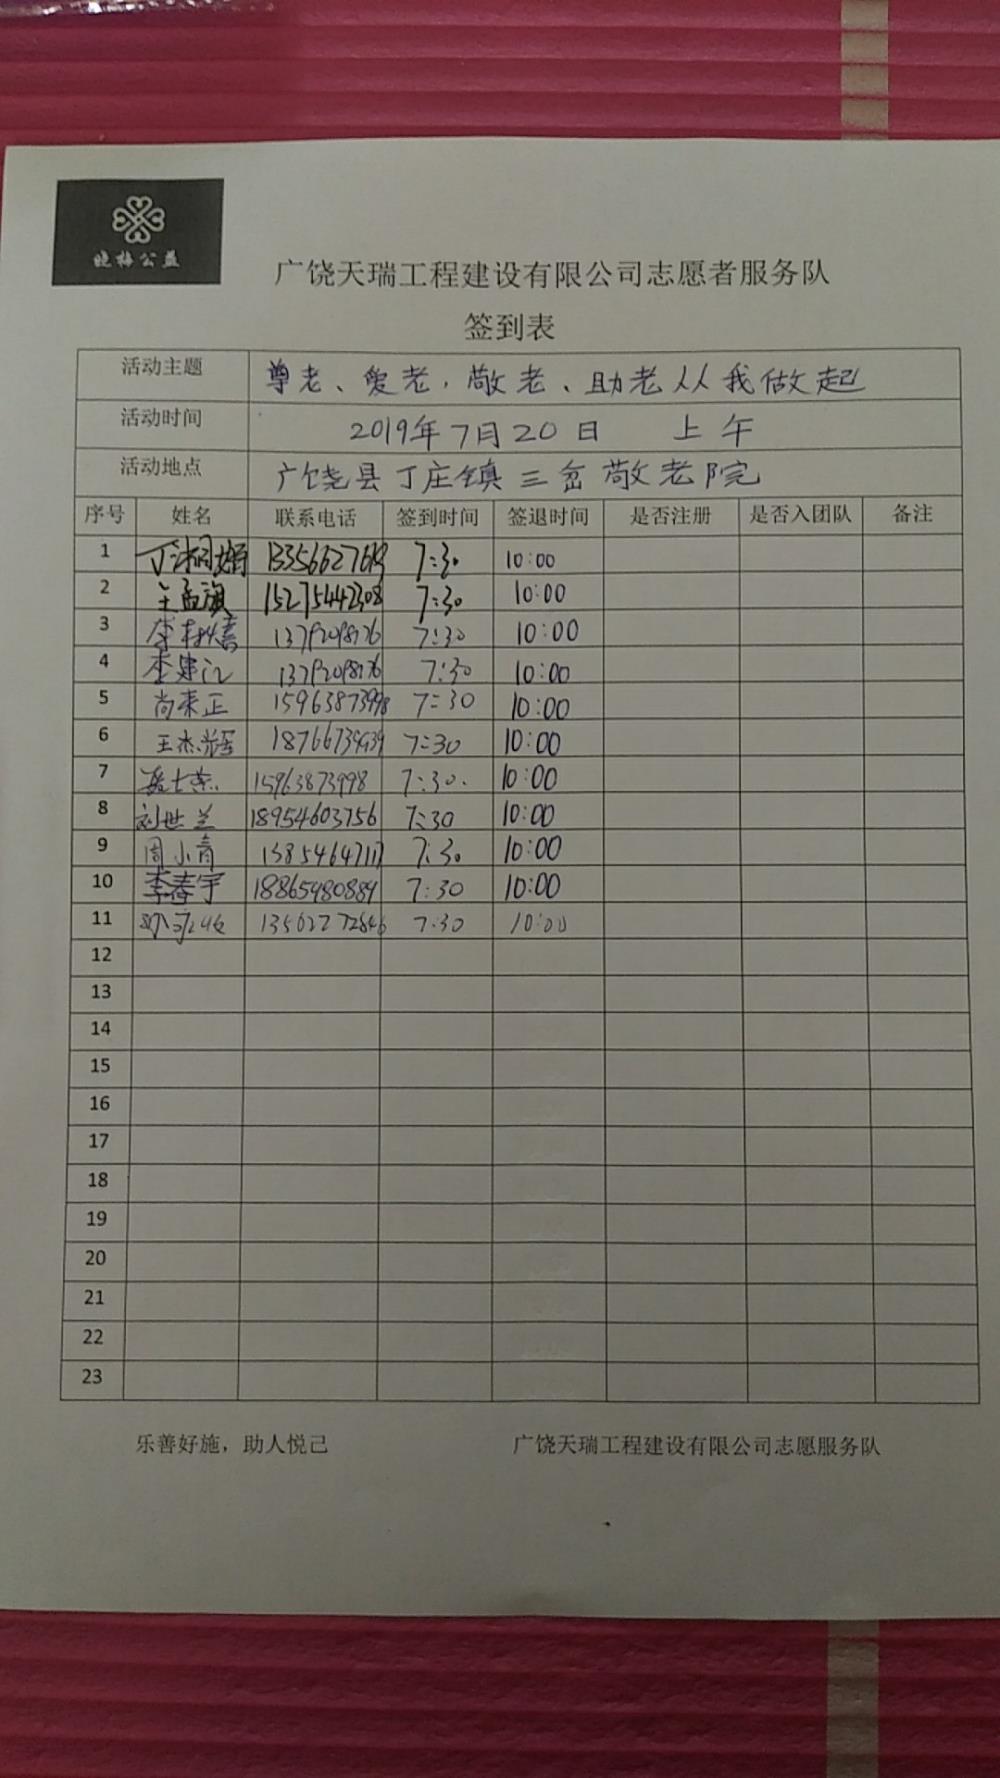 晓梅公益
广饶天瑞工程建设有限公司志愿者服务队
签到表
活动主题 尊老、爱老、敬老、助老从我做起
活动时间 2019年7月20日 上午
活动地点 广饶县丁庄镇三岔敬老院
序号 姓名 联系电话 签到时间 签退时间 是否注册 是否入团队 备注
1 7:30 10:00
2 王孟旗 15275442308 7:30 10:00
3 李树嘉 7:30 10:00
4 李建江 7:30 10:00
5 尚来正 15963873998 7:30 10:00
6 王杰辉 7:30 10:00
7 15963873998 7:30 10:00
8 刘世兰 18954603756 7:30 10:00
9 周小青 7:30 10:00
10 李春宇 18865980884 7:30 10:00
11 7:30 10:00
12
13
14
15
16
17
18
19
20
21
22
23
乐善好施，助人悦己 广饶天瑞工程建设有限公司志愿服务队